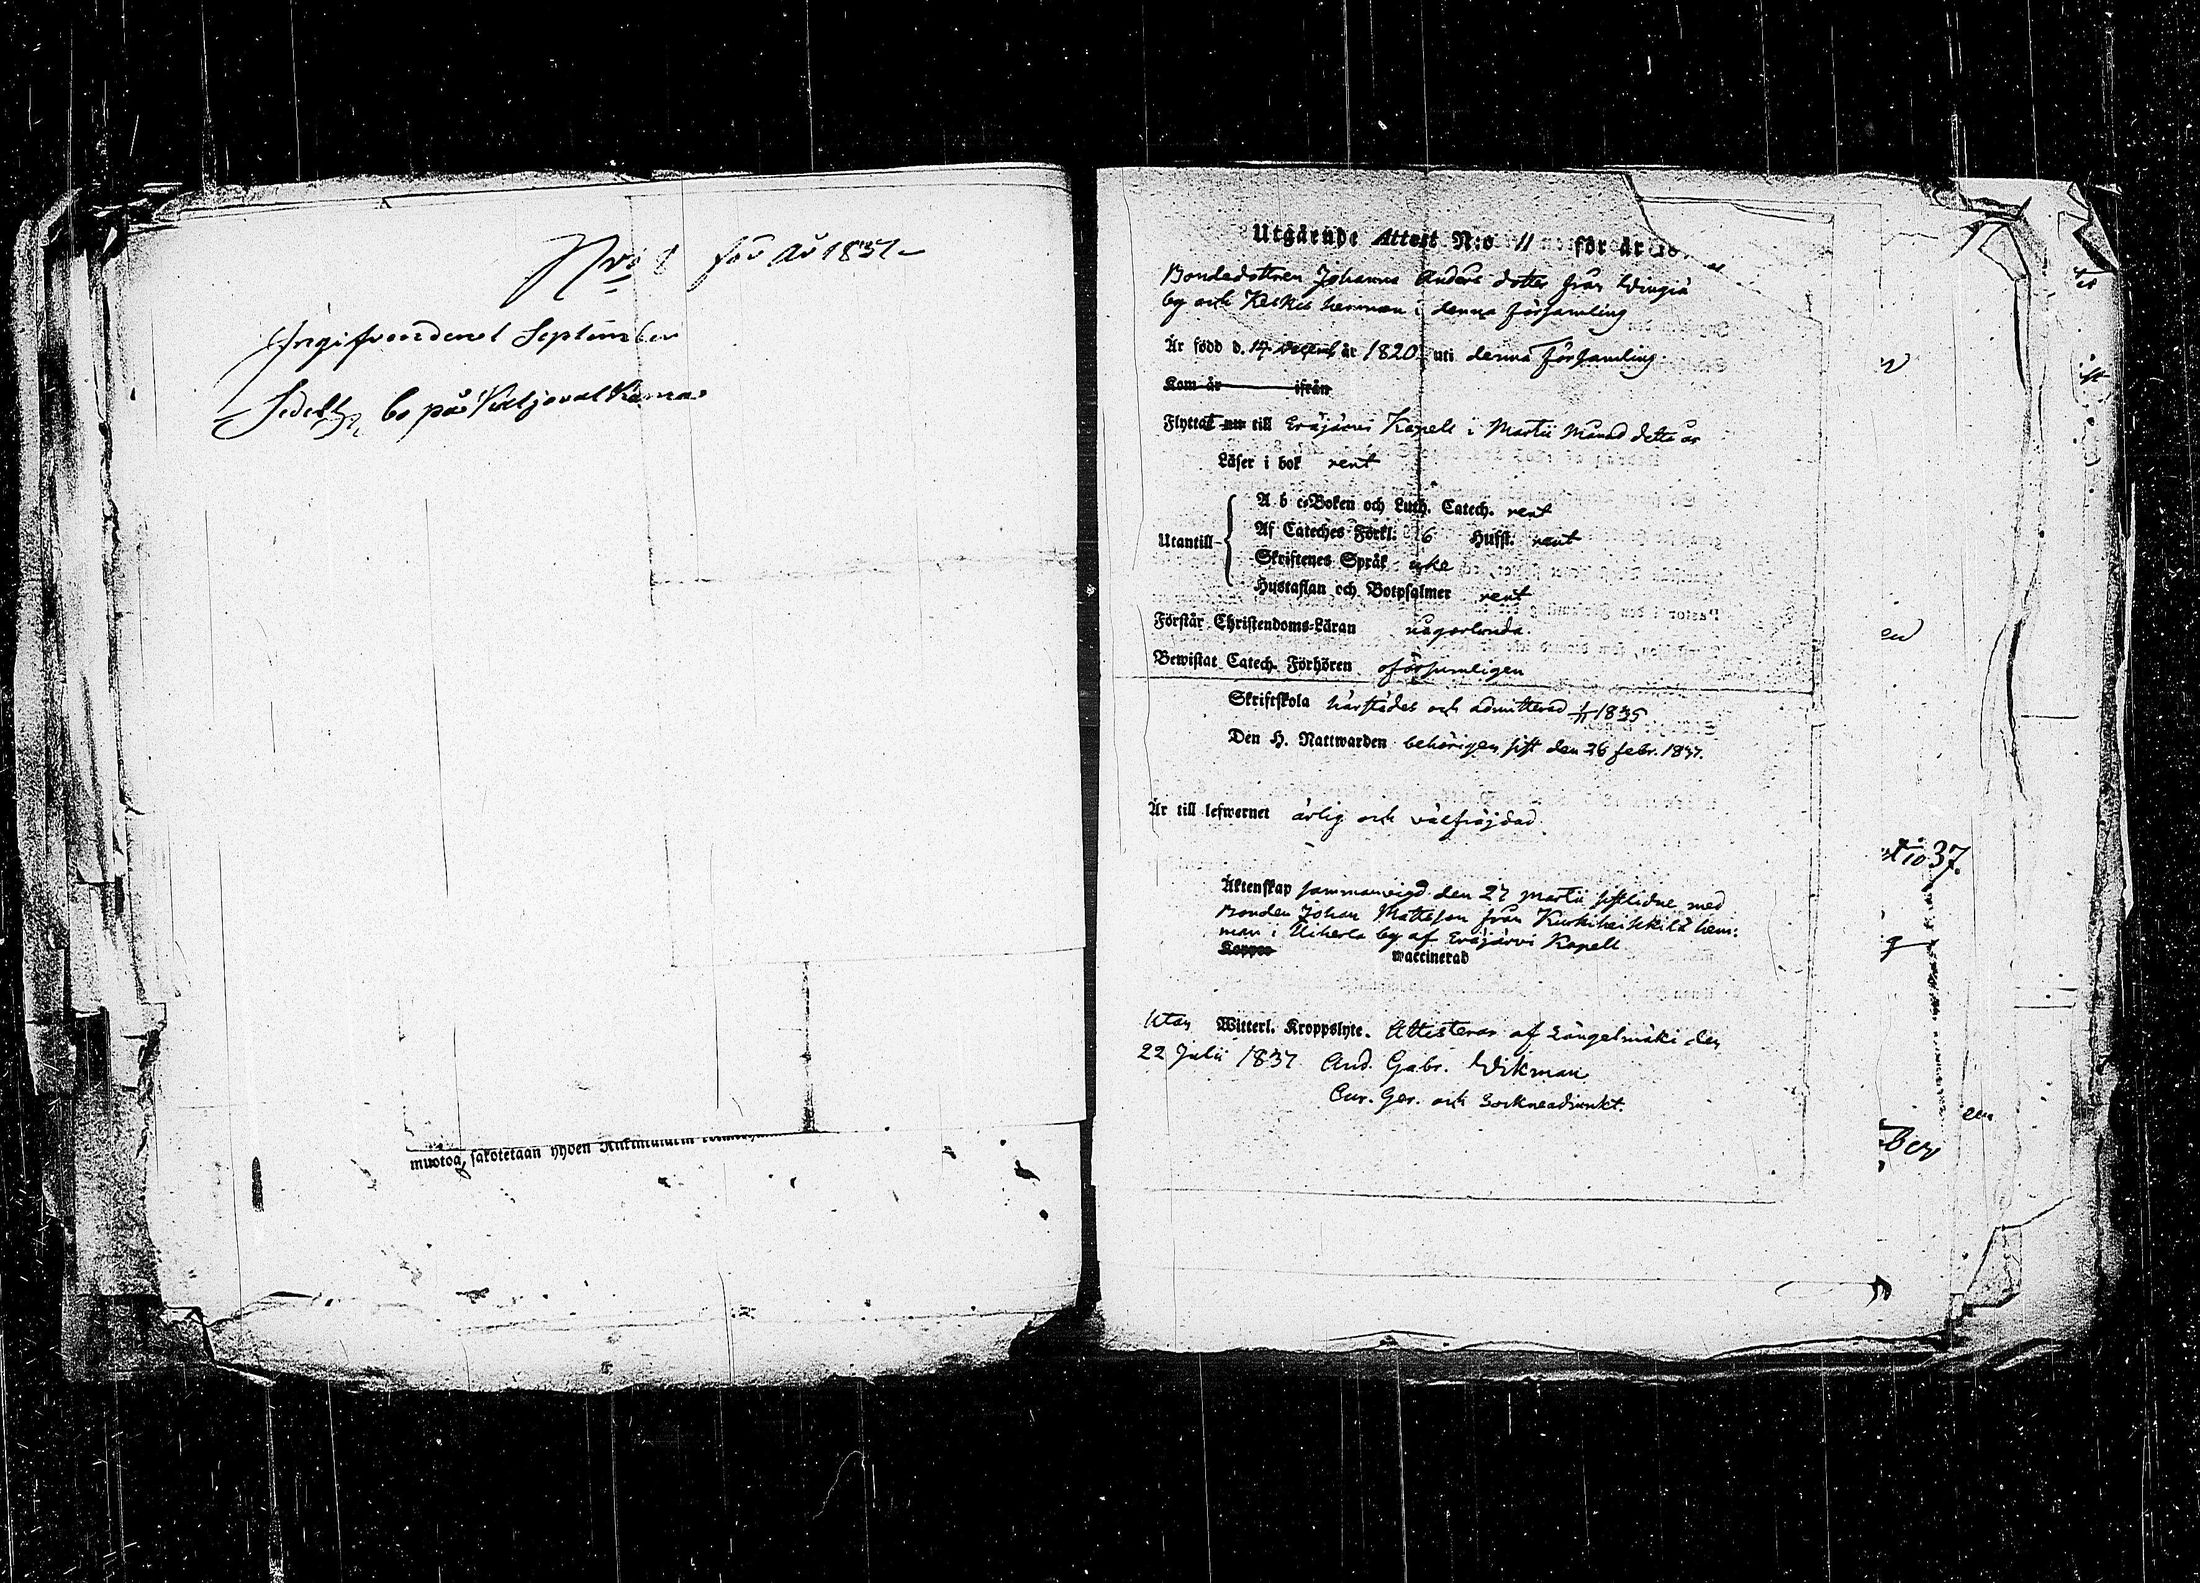 Nro 8 för År 1837
Ingifven den 1 September
bo på
muotoa, sakotetaan yhden
Utgående Attest N:o 11 för år 18
Bondedottren Johanna Anders dotter från Wingiä
by och Keskis hemman i denna församling
Är född d. 14 Decemb år 1820 uti denna församling.
Kom år ifrån
Flyttat nu till Eräjärvi Kapell i Martii Månad detta år
Läser i bok rent
A b c-Boken och Luth. Catech. rent
Utantill
Af Cateches Förkl. 6 Hufst. rent
Skriftenes Språk icke
Hustaflan och Botpsalmer rent
Förstår Christendoms-Läran någorlunda.
Bewistat Catech. Förhören oförsumligen
Skriftskola härstädes och admitterad 1835
Den H. Nattwarden behörigen, sist den 26 febr. 1837.
Är till lefwernet ärlig och välfräjdad
Äktenskap sammanvigd den 27 Martii sistlidne med
Bonden Johan Mattsson från Kurkiheikkilä hem-
man i Uiherla by af Eräjärvi Kapell
Koppor waccinerad
Utan Witterl. Kroppslyte. Attesterar af Längelmäki den
22 Julii 1837 And. Gabr. Wikman
Cur. Ger. och Sockneadjunkt.
37.